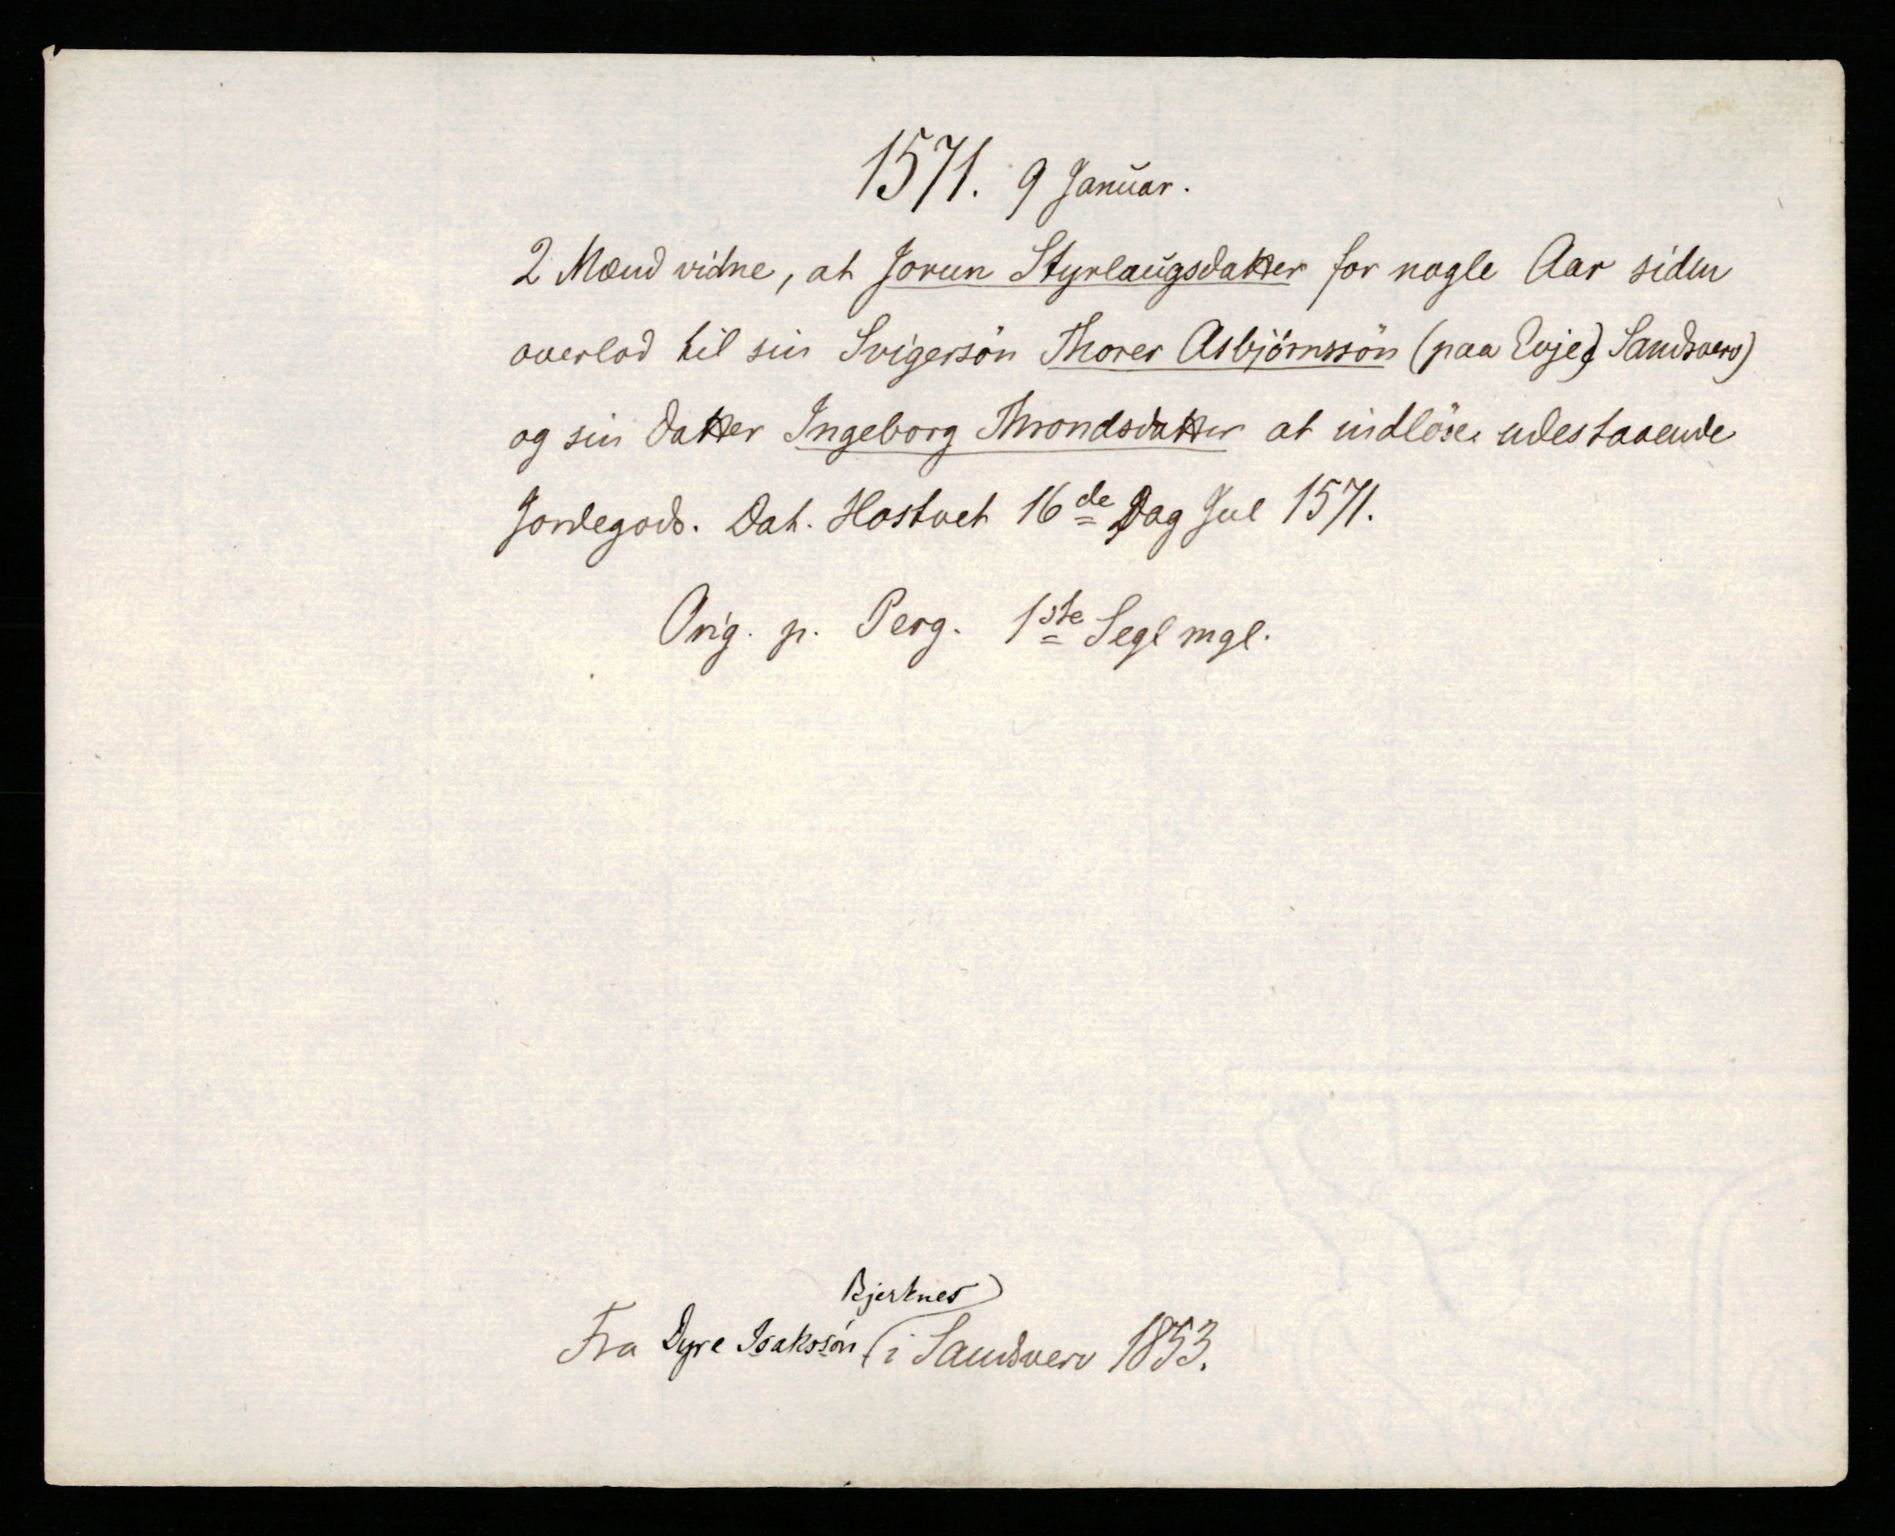 1571. 9 Januar.
2 Mænd vidne, at Jorun Styrlaugsdatter for nogle Aar siden
overlod til sin Svigersön Thorer Asbjörnssön (paa Evje, Sandsverv)
og sin Datter Ingeborg Throndsdatter at indlöse udestaaende
Jordegods. Dat. Hostvet 16de Dag Jul 1571.
Orig. p. Perg. 1ste Segl mgl.
Bjerknes
Fra Dyre Isakssön i Sandsverv 1853.